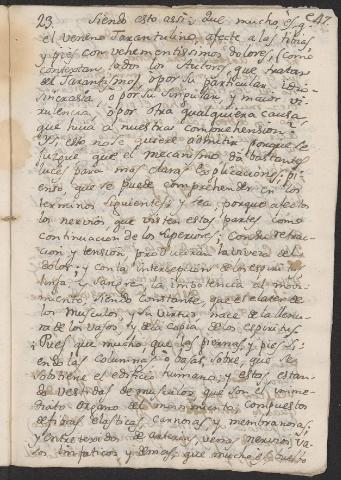 23. Siendo esto assi: Que mucho, es, q. 47.
el veneno Tarantulino, afecte a las tibias,
y pies con vehementissimos dolores, como
contextan todos los Autores, que tratan
del Tarantismo, o por su particular idio-
sincrasia, o por su singular, y maior vi-
rulencia, o por otra qualquiera causa,
que huia a nuestra comprehension?
Y si esto no se quiere admitir, porque se
juzgue, que el mecanismo da bastante
luces para mas clara explicacion; pi-
enso, que se puede comprehender en los
terminos siguientes: y sea, porque afectos
los nervios, que visten estas partes como
continuacion de los superiores, con su retrac-
cion y tension, produzcan la viveza del
dolor; y con la intercepcion de los espiritus
linfa, y sangre, la impotencia al movi-
miento, siendo constante, que el elater de
los Musculos, y su virtud, nace de la llenu-
ra de los vasos, y de la copia de los espiritus.
Pues que mucho, que las piernas, y pies si-
endo las columnas, o basas, sobre que se
obtiene el edificio humano; y estos estan-
do vestidas de musculos, que son el imme-
diato organo del movimiento, compuestos
de fibras elasticas, carnosas, y membranosas;
y entretexidos de arterias, venas, nervios, va-
sos linfaticos y demas; que mucho